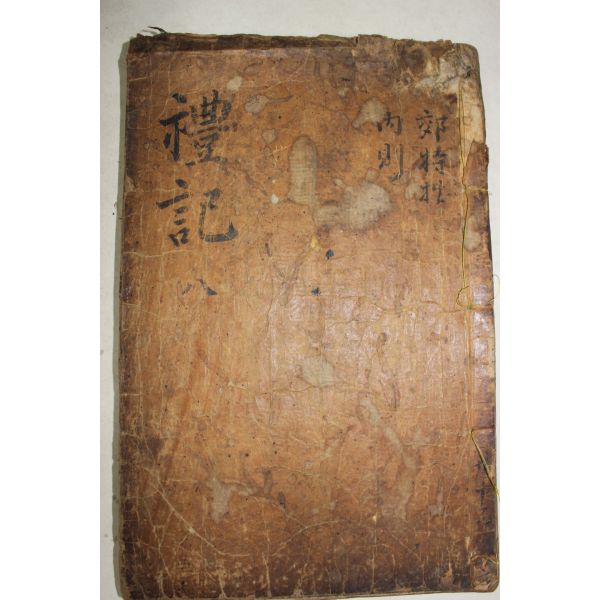 郊特牲
內則
禮記
八